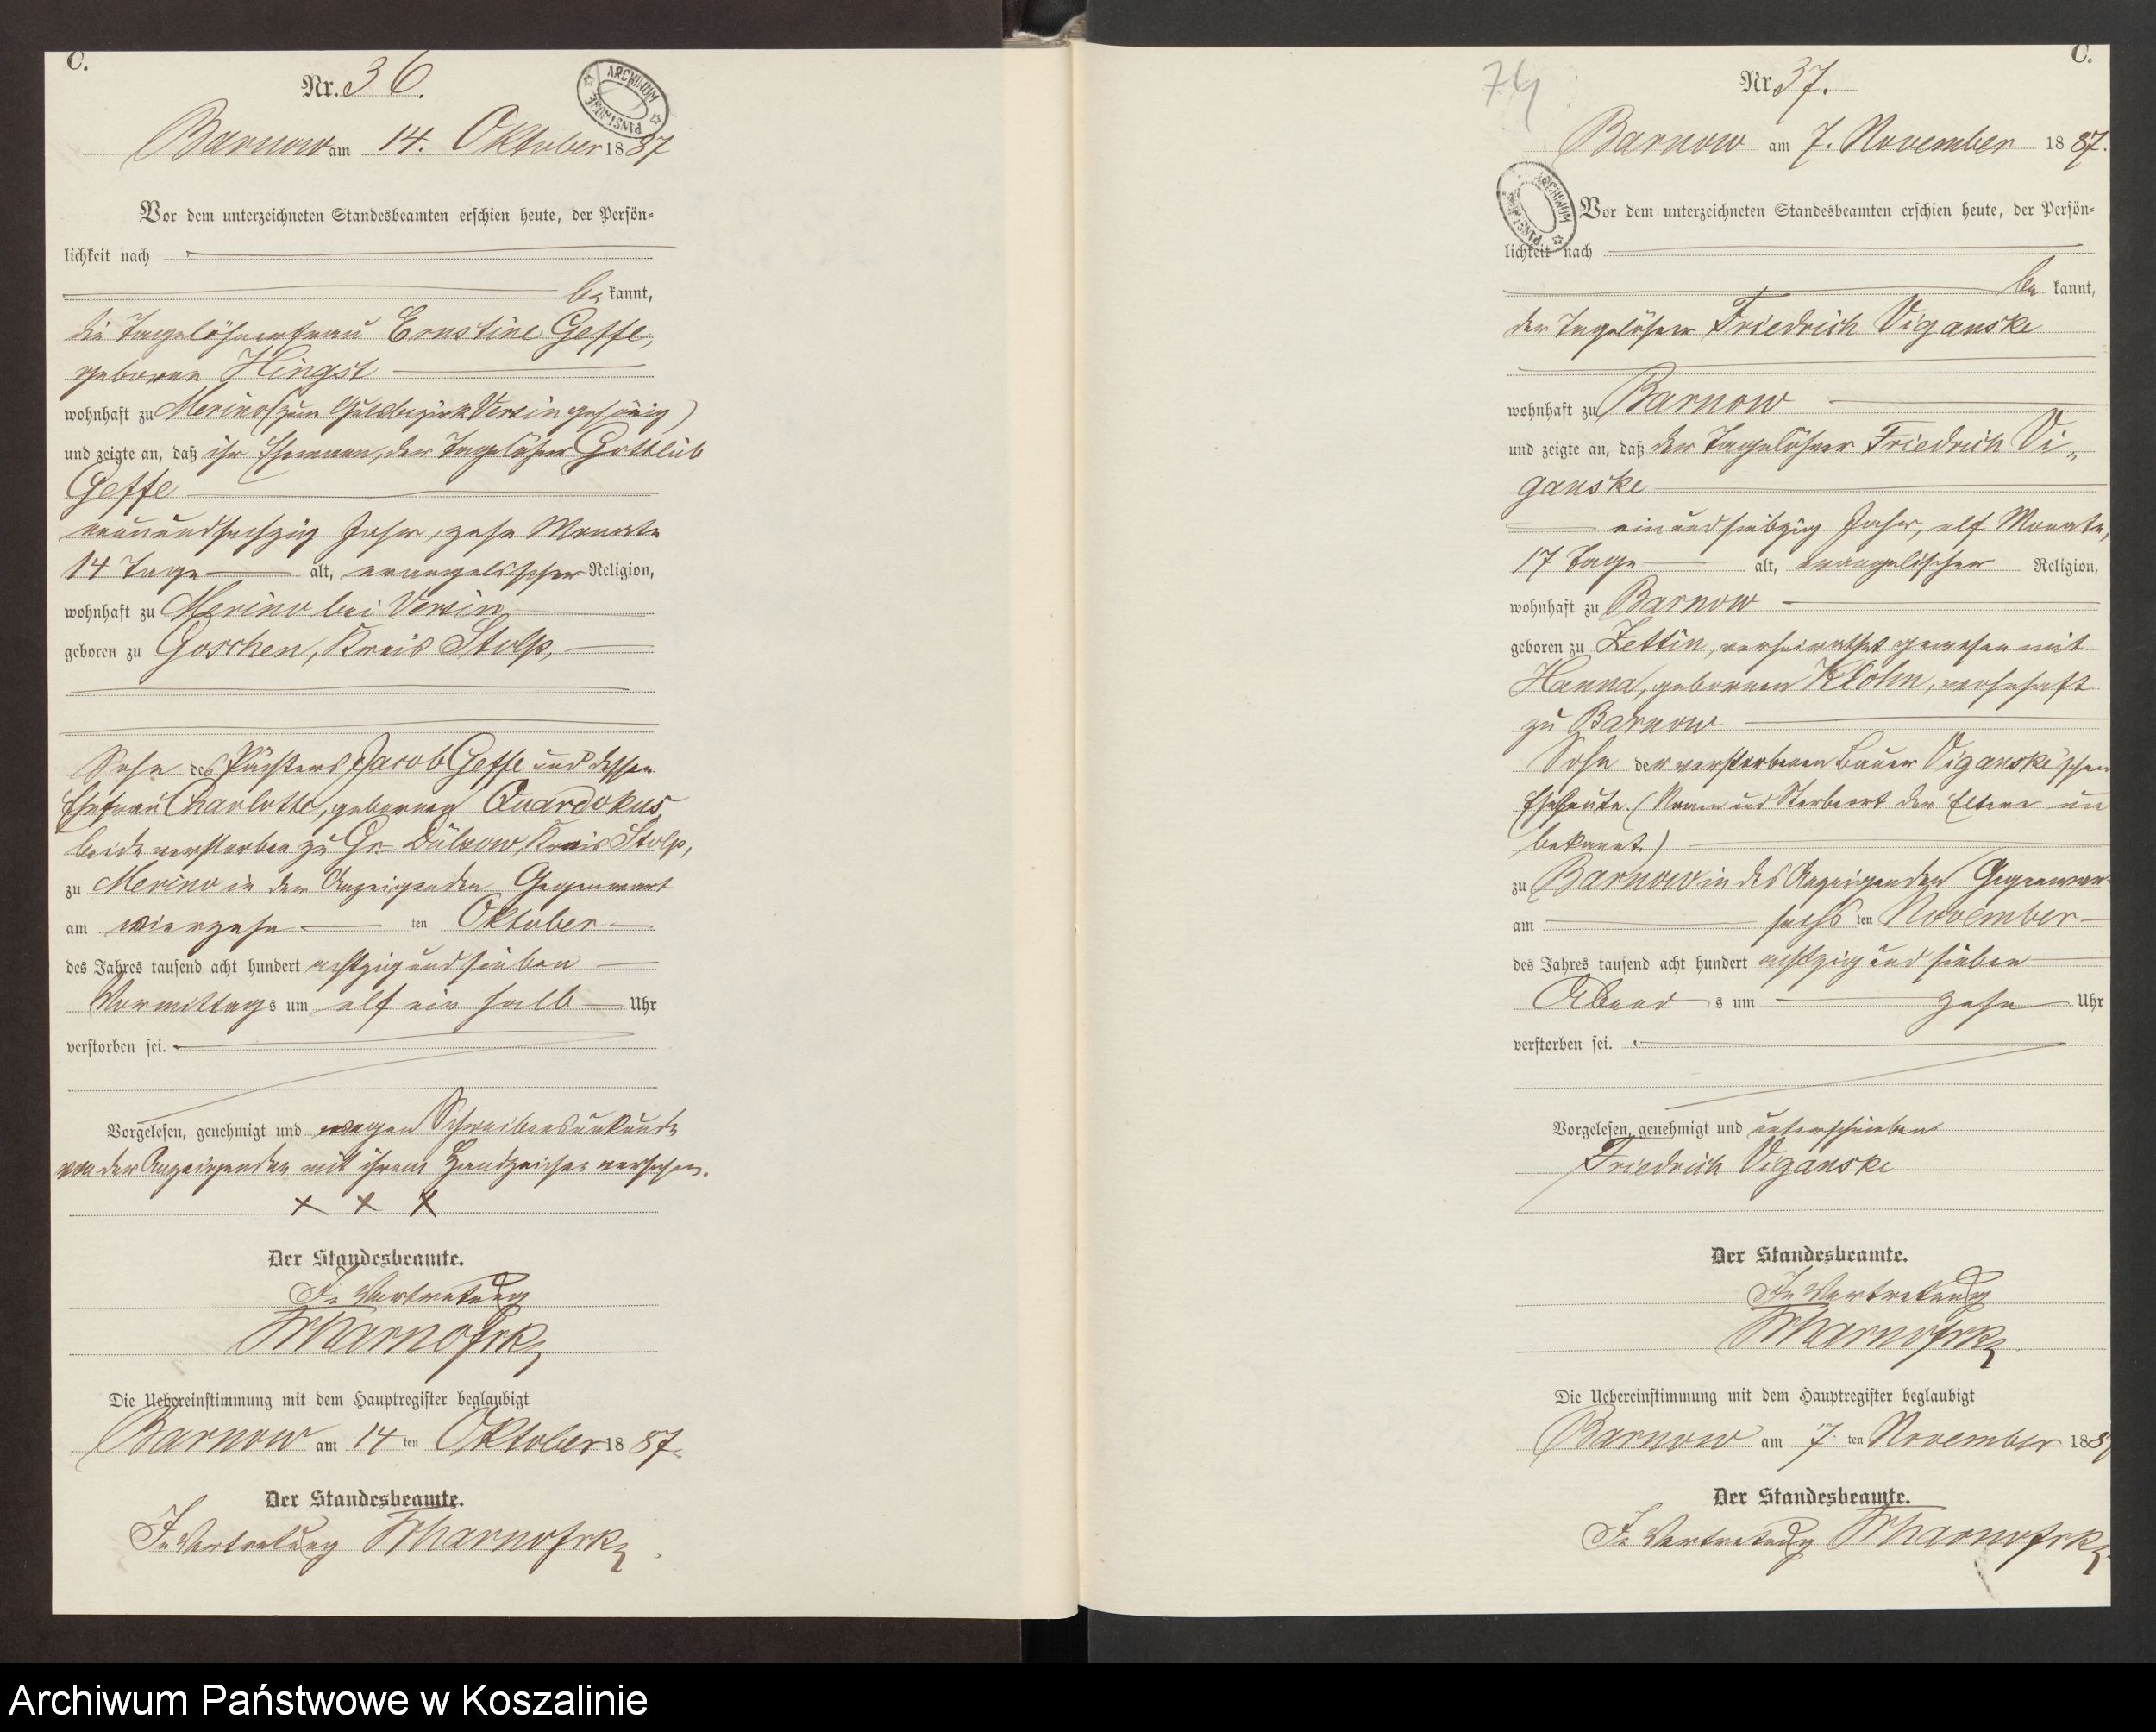 C.
Nr. 36.
ARCHIWUM PAŃSTWOWE
Barnow am 14. Oktober 1887
Vor dem unterzeichneten Standesbeamten erschien heute, der Persön=
lichkeit nach
be kannt,
die Tagelöhnerfrau Ernstine Geffe,
geborene Hingst
wohnhaft zu Merino (zum Gutsbezirk Versin gehörig)
und zeigte an, daß ihr Ehemann, der Tagelöhner Gottlieb
Geffe
neunundsechzig Jahre, zehn Monate
14 Tage alt, evangelischer Religion,
wohnhaft zu Merino bei Versin
geboren zu Goschen, Kreis Stolp,
Sohn des Pächters Jacob Geffe und dessen
Ehefrau Charlotte, geborenen Quardokus,
beide verstorben zu Gr. Dübsow, Kreis Stolp,
zu Merino in der Anzeigenden Gegenwart
am vierzehn ten Oktober
des Jahres tausend acht hundert achtzig und sieben
Vormittags um elf ein halb Uhr
verstorben sei.
Vorgelesen, genehmigt und wegen Schreibensunkunde
von der Anzeigenden mit ihrem Handzeichen versehen.
x x x
Der Standesbeamte.
In Vertretung
Die Uebereinstimmung mit dem Hauptregister beglaubigt
Barnow am 14 ten Oktober 1887.
Der Standesbeamte.
In Vertretung
C.
74
Nr. 37.
Barnow am 7. November 1887.
ARCHIWUM PAŃSTWOWE
Vor dem unterzeichneten Standesbeamten erschien heute, der Persön=
lichkeit nach
be kannt,
der Tagelöhner Friedrich Viganske
wohnhaft zu Barnow
und zeigte an, daß der Tagelöhner Friedrich Vi„
ganske
einundsiebzig Jahre, elf Monate,
17 Tage alt, evangelischer Religion,
wohnhaft zu Barnow
geboren zu Zettin, verheirathet gewesen mit
Hanna, geborenen Klohn, wohnhaft
zu Barnow
Sohn der verstorbenen Bauer Viganske'schen
Eheleute. (Namen und Sterbeort der Eltern un
bekannt.)
zu Barnow in des Anzeigenden Gegenwar
am sechs ten November
des Jahres tausend acht hundert achtzig und sieben
Abend s um zehn Uhr
verstorben sei.
Vorgelesen, genehmigt und unterschrieben
Friedrich Viganske
Der Standesbeamte.
In Vertretung
Die Uebereinstimmung mit dem Hauptregister beglaubigt
Barnow am 7. ten November 188
Der Standesbeamte.
In Vertretung
Archiwum Państwowe w Koszalinie